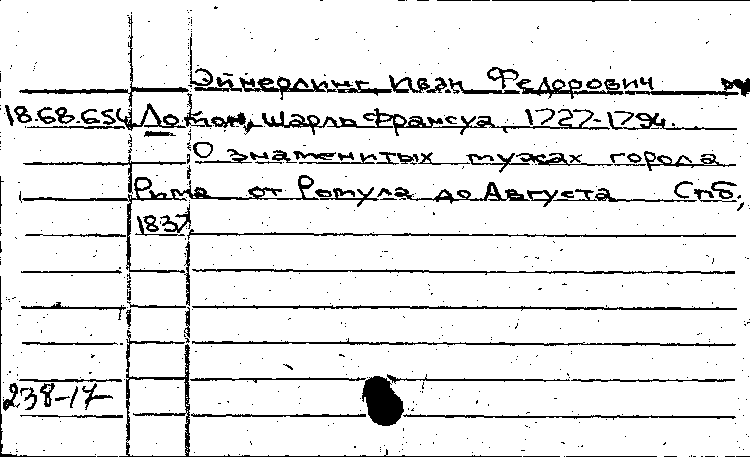 Эйнерлинг, Иван Федорович
18.68.654 Ломон, Шарль Франсуа, 1727-1794.
О знаменитых мужах города
Рима от Ромула до Августа Спб,
1837
238-17-